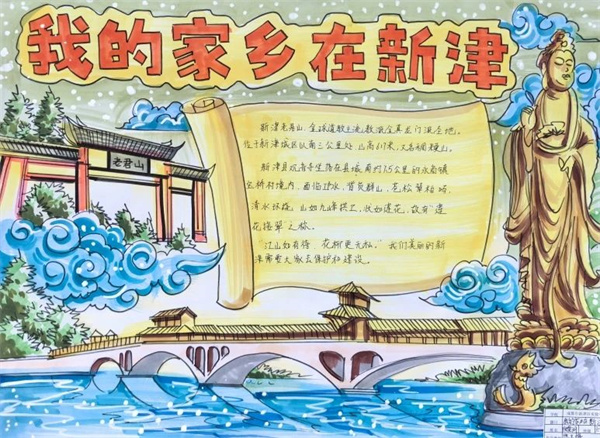 我的家乡在新津
老君山
新津老君山,全球道教主流教派全真龙门派圣地。
位于新津城区以南三公里处,山高617米,又名稠粳山。
新津县观音寺坐落在县城南约7.5公里的永商镇
宝桥村境内,面临江水,背负群山,苍松翠柏
清水环绕,山如九峰拱卫,状如莲花,故有"莲
花接翠"之称。
"江山如有待,花柳更无私。"我们美丽的新
津需要大家去保护和建设。